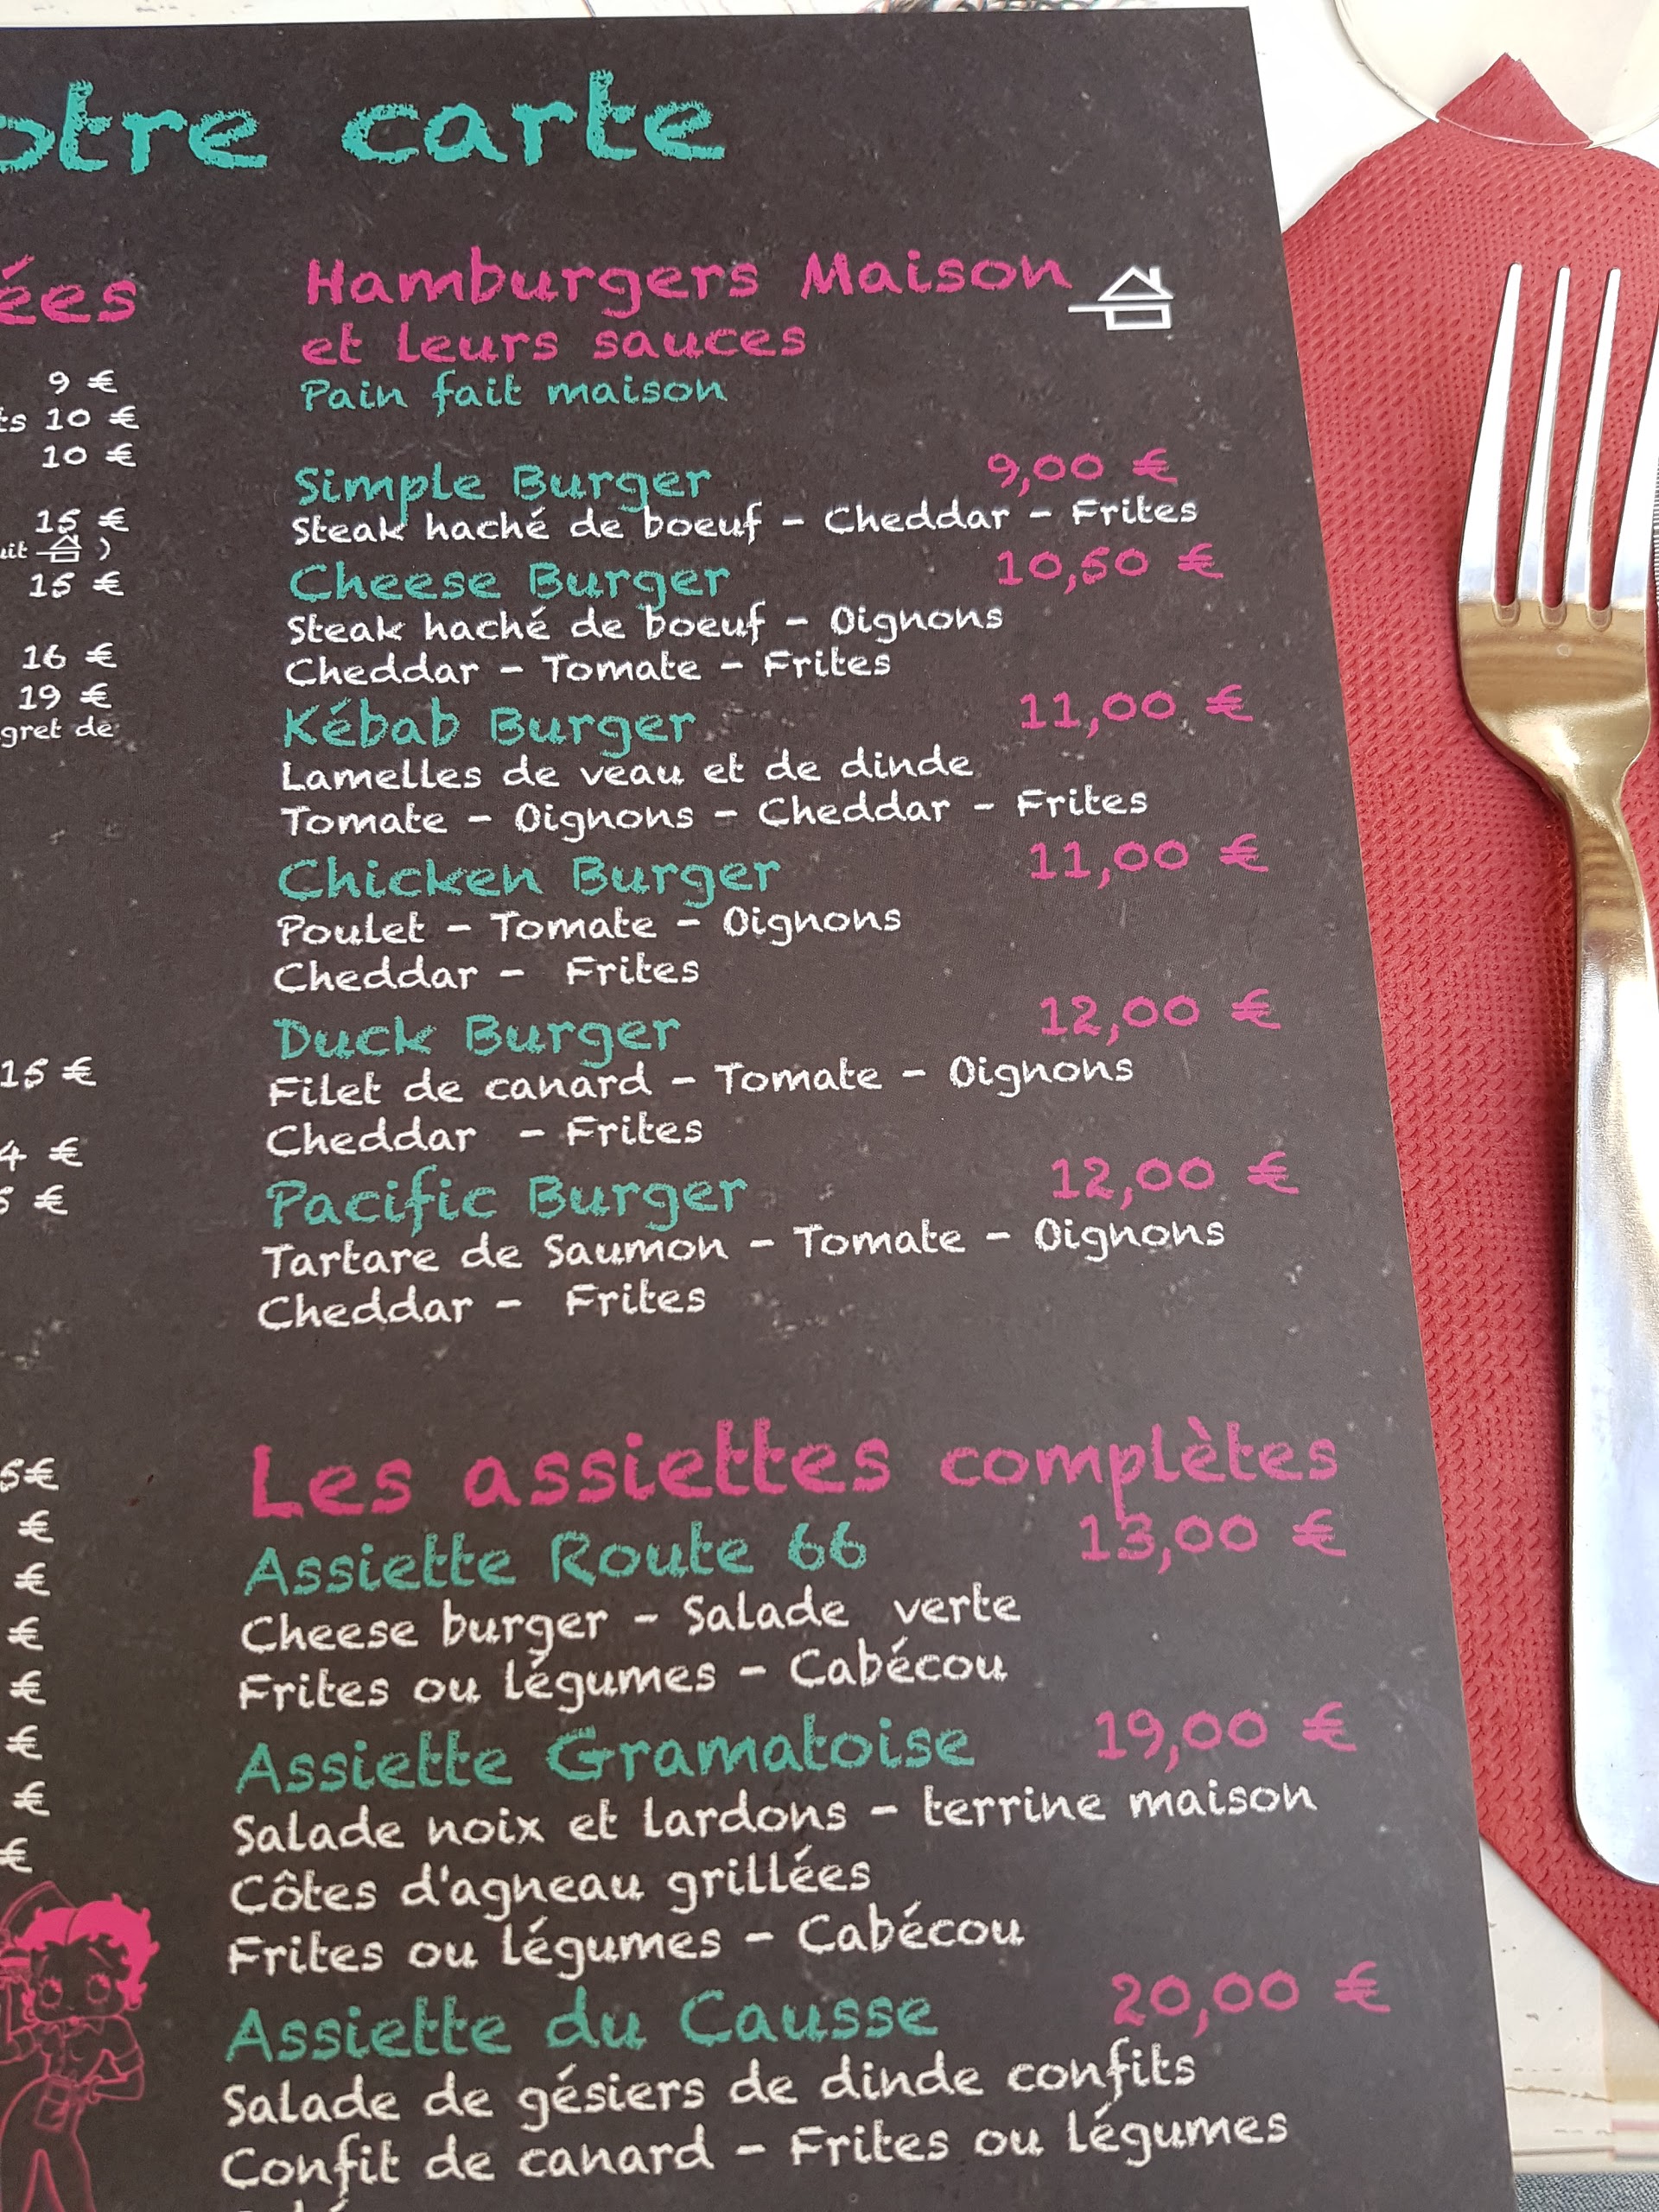 otre carte
ées
9 €
ts 10 €
10 €
15 €
uit )
15 €
16 €
19 €
gret de
15 €
4 €
5 €
5€
€
€
€
€
€
€
€
Hamburgers Maison
et leurs sauces
Pain fait maison
Simple Burger 9,00 €
Steak haché de boeuf - Cheddar - Frites
Cheese Burger 10,50 €
Steak haché de boeuf - Oignons
Cheddar - Tomate - Frites
Kébab Burger 11,00 €
Lamelles de veau et de dinde
Tomate - Oignons - Cheddar - Frites
Chicken Burger 11,00 €
Poulet - Tomate - Oignons
Cheddar - Frites
Duck Burger 12,00 €
Filet de canard - Tomate - Oignons
Cheddar - Frites
Pacific Burger 12,00 €
Tartare de Saumon - Tomate - Oignons
Cheddar - Frites
Les assiettes complètes
Assiette Route 66 13,00 €
Cheese burger - Salade verte
Frites ou légumes - Cabécou
Assiette Gramatoise 19,00 €
Salade noix et lardons - terrine maison
Côtes d'agneau grillées
Frites ou légumes - Cabécou
Assiette du Causse 20,00 €
Salade de gésiers de dinde confits
Confit de canard - Frites ou légumes